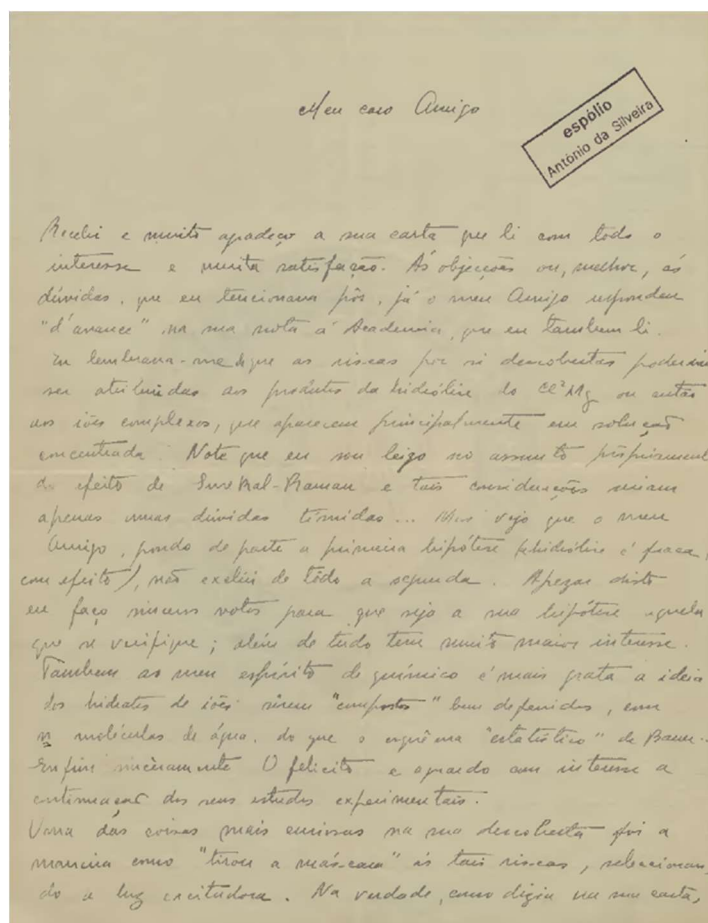 Meu caro Amigo
espólio
António da Silveira
Recebi e muito agradeço a sua carta que li com todo o
interesse e muita satisfação. Ás objecções ou, melhor, ás
dúvidas, que eu tencionava pôr, já o meu Amigo respondeu
"d'avance" na sua nota á Academia, que eu tambem li.
Eu lembrava-me que as riscas por si descobertas poderiam
ser atribuidas aos produtos da hidrólise do Cl²Mg ou então
aos iões complexos, que aparecem principalmente em solução
concentrada. Note que eu sou leigo no assunto
do efeito de Raman e tais considerações seriam
apenas umas dúvidas tímidas... Mas vejo que o meu
Amigo, pondo de parte a primeira hipótese (hidrólise é fraca,
com efeito), não exclui de todo a segunda. Apezar disto
eu faço sinceros votos para que seja a sua hipótese aquela
que se verifique; além de tudo tem muito maior interesse.
Tambem ao meu espírito de químico é mais grata a ideia
dos hidratos de iões serem "compostos" bem definidos, com
n moléculas de água, do que o esquêma "estatístico" de
Enfim sinceramente O felicito e aguardo com interesse a
continuação dos seus estudos experimentais.
Uma das coisas mais curiosas na sua descoberta foi a
maneira como "tirou a máscara" ás tais riscas, selecionan-
do a luz excitadora. Na verdade, como dizia na sua carta,